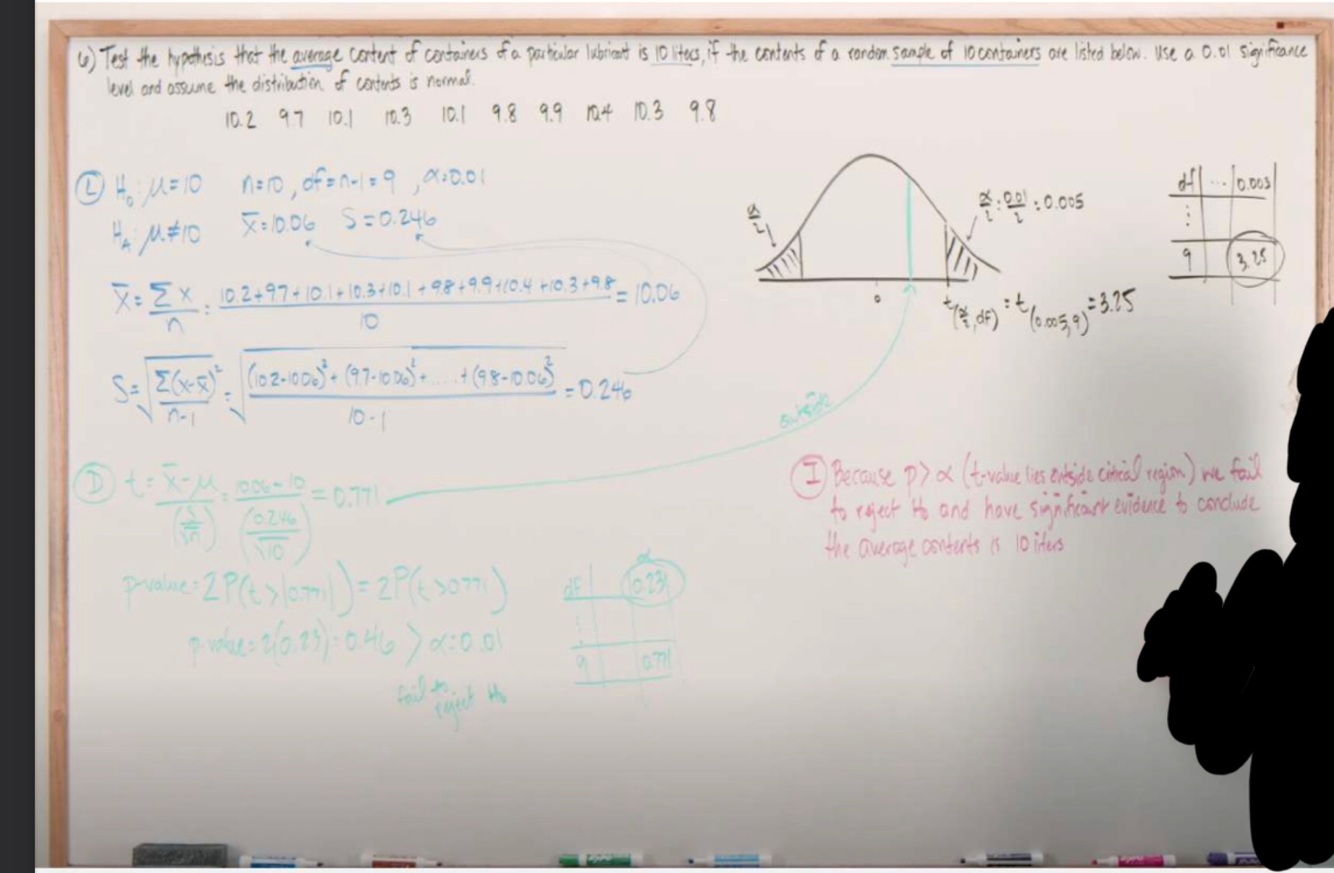 6) Test the hypothesis that the average content of containers of a particular lubricant is 10 liters, if the contents of a random sample of 10 containers are listed below. Use a 0.01 significance
level and assume the distribution of contents is normal.
10.2 9.7 10.1 10.3 10.1 9.8 9.9 10.4 10.3 9.8
H₀: μ=10 n=10, df=n-1=9, α=0.01
H_A: μ≠10 x̄=10.06 S=0.246
x̄ = Σx/n = (10.2+9.7+10.1+10.3+10.1+9.8+9.9+10.4+10.3+9.8)/10 = 10.06
S=√(Σ(x-x̄)²/(n-1)) = √(((10.2-10.06)²+(9.7-10.06)²+.....+(9.8-10.06)²)/(10-1)) = 0.246
Ⓓ t = (x̄-μ)/(S/√n) = (10.06-10)/(0.246/√10) = 0.771
p-value = 2P(t>|0.771|) = 2P(t>0.771)
p-value = 2(0.23) = 0.46 > α=0.01
fail to
reject H₀
α
df 0.23
⋮
9 0.771
α/2
α/2 = 0.01/2 = 0.005
0
t(α/2, df) = t(0.005, 9) = 3.25
outside
df ... 0.003
⋮
9 3.25
Ⓘ Because p > α (t-value lies outside critical region) we fail
to reject H₀ and have significant evidence to conclude
the average contents is 10 liters